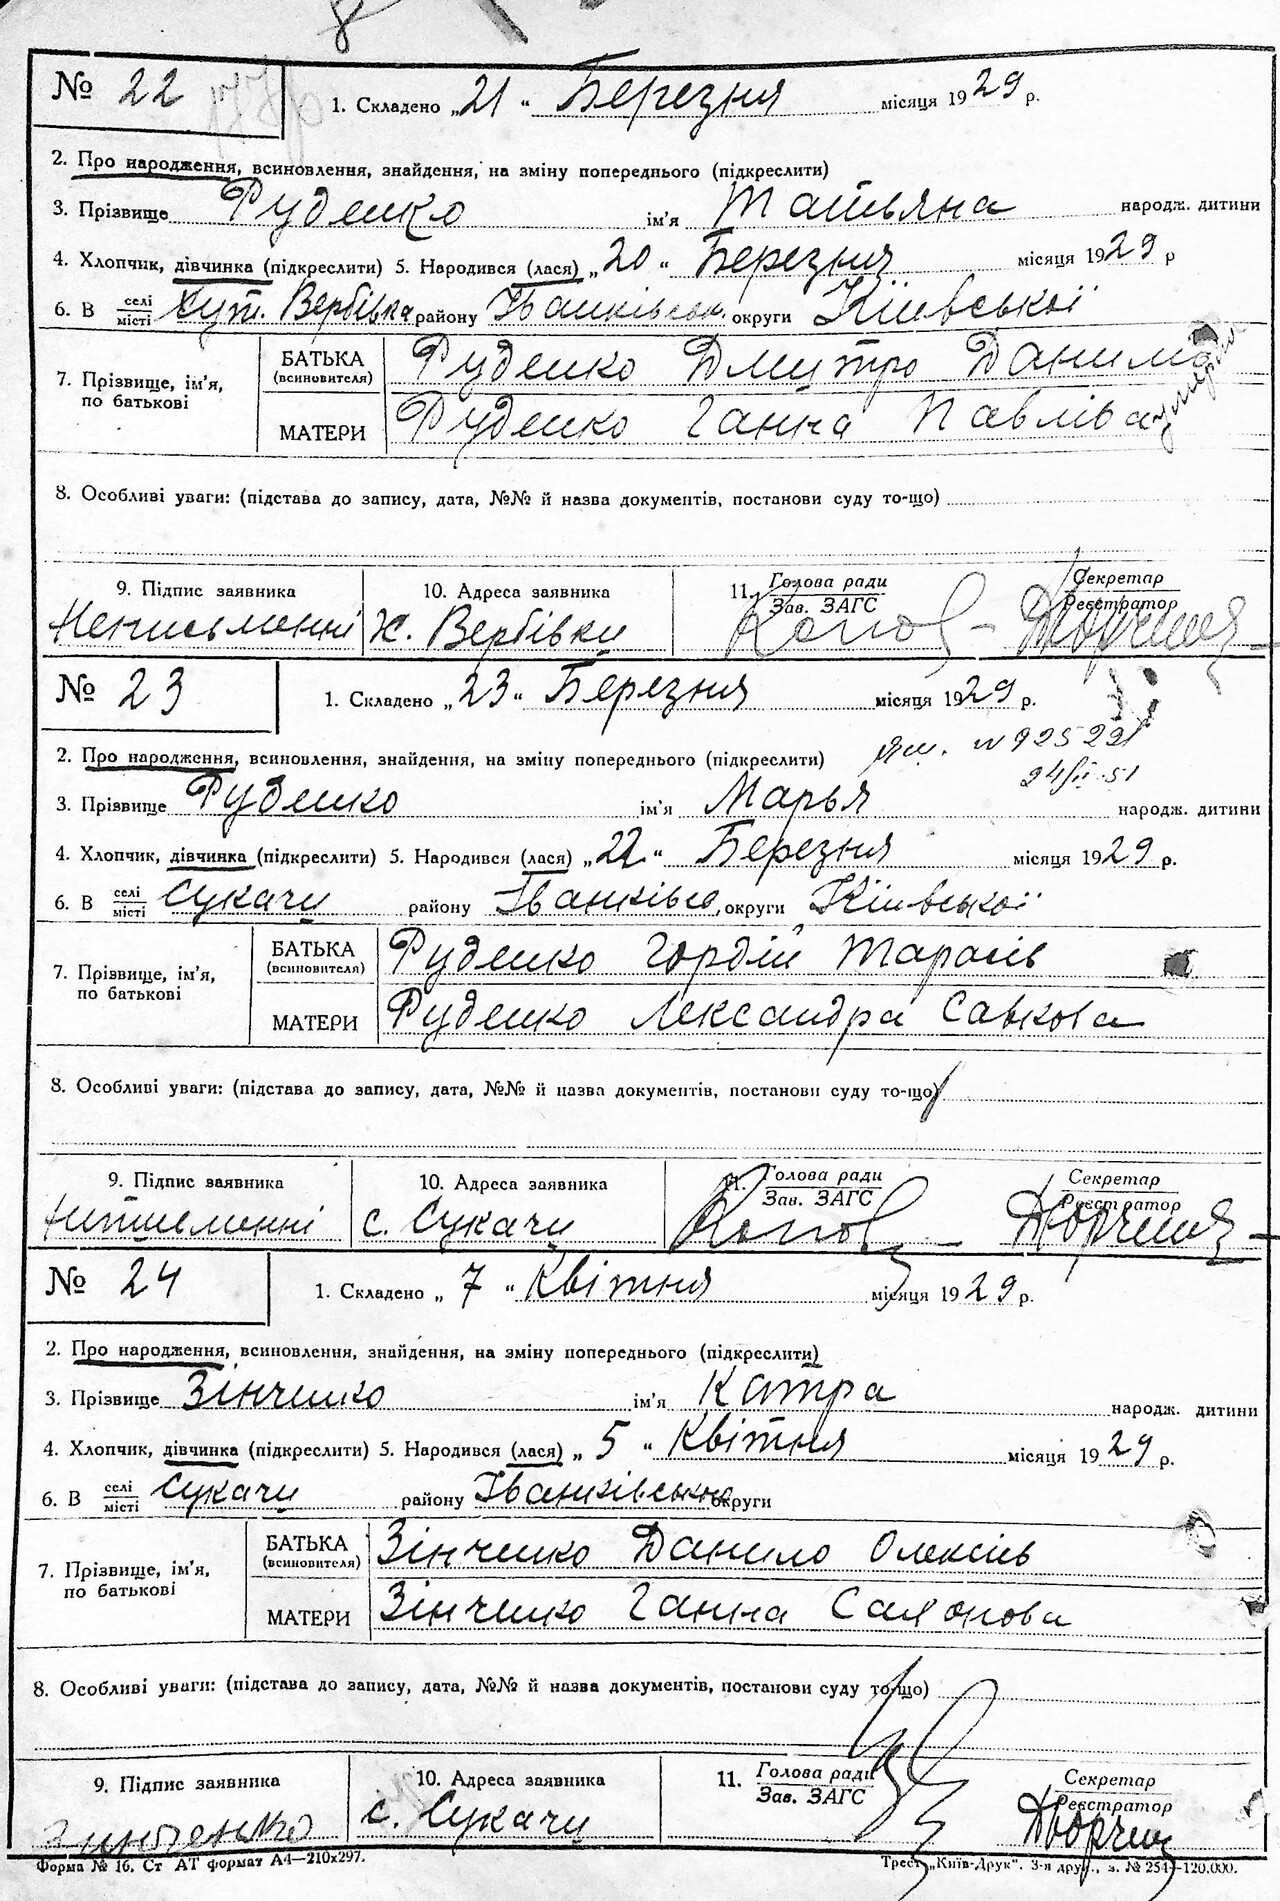 № 22
1. Складено „21“ Березня місяця 1929 р.
2. Про народження, всиновлення, знайдення, на зміну попереднього (підкреслити)
3. Прізвище Руденко ім'я Татьяна народж. дитини
4. Хлопчик, дівчинка (підкреслити) 5. Народився (лася) „20“ Березня місяця 1929 р
6. В селі/місті Хут. Вербівка району Іванківськ. округи Київської
7. Прізвище, ім'я, по батькові
БАТЬКА (всиновителя) Руденко Дмитро Данило
МАТЕРИ Руденко Ганна Павліва
8. Особливі уваги: (підстава до запису, дата, №№ й назва документів, постанови суду то-що)
9. Підпис заявника 10. Адреса заявника 11. Голова ради/Зав. ЗАГС Секретар/Реєстратор
Неписьменні Х. Вербівки
№ 23
1. Складено „23“ Березня місяця 1929 р.
2. Про народження, всиновлення, знайдення, на зміну попереднього (підкреслити)
N 925221
3. Прізвище Руденко ім'я Марья народж. дитини
4. Хлопчик, дівчинка (підкреслити) 5. Народився (лася) „22“ Березня місяця 1929 р.
6. В селі/місті Сукачи району Іванківсь округи Київської
7. Прізвище, ім'я, по батькові
БАТЬКА (всиновителя) Руденко Гордій Тарасів
МАТЕРИ Руденко Лександра Савкова
8. Особливі уваги: (підстава до запису, дата, №№ й назва документів, постанови суду то-що)
9. Підпис заявника 10. Адреса заявника 11. Голова ради/Зав. ЗАГС Секретар/Реєстратор
с. Сукачи
№ 24
1. Складено „7“ Квітня місяця 1929 р.
2. Про народження, всиновлення, знайдення, на зміну попереднього (підкреслити)
3. Прізвище Зінченко ім'я Катра народж. дитини
4. Хлопчик, дівчинка (підкреслити) 5. Народився (лася) „5“ Квітня місяця 1929 р.
6. В селі/місті Сукачи району Іванківського округи
7. Прізвище, ім'я, по батькові
БАТЬКА (всиновителя) Зінченко Данило Олексіїв
МАТЕРИ Зінченко Ганна Самонова
8. Особливі уваги: (підстава до запису, дата, №№ й назва документів, постанови суду то-що)
9. Підпис заявника 10. Адреса заявника 11. Голова ради/Зав. ЗАГС Секретар/Реєстратор
Зинченко с. Сукачи
Форма № 16. Ст АТ формат А4—210х297. Трест „Київ-Друк“. 3-я друк., з. № 254—120.000.